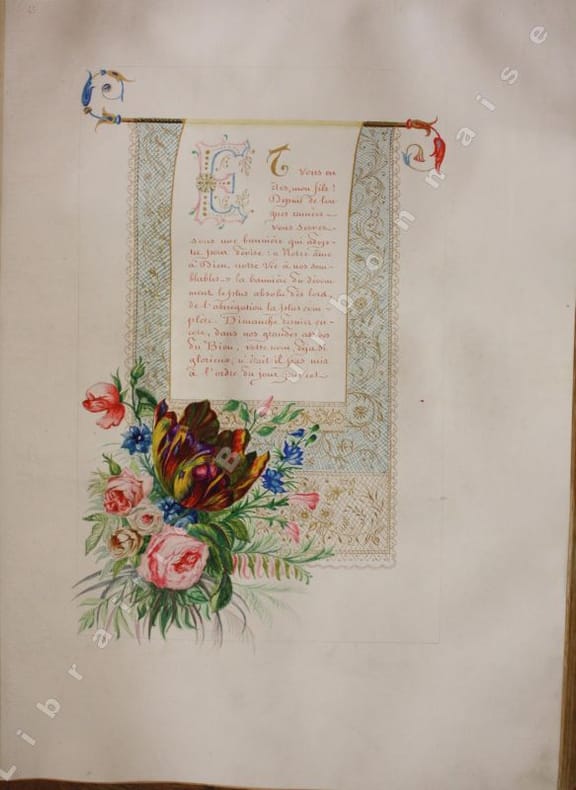 ET vous en
êtes, mon fils !
Depuis de lon
gues années
vous servez
sous une bannière qui adop-
te pour devise : « Notre âme
à Dieu, notre Vie à nos sem-
blables. » la bannière du dévou-
ment le plus absolu dès lors,
de l'abnégation la plus com-
plète. Dimanche dernier en-
core, dans nos grandes assises
du Bien, votre nom, déjà si
glorieux, n'était il pas mis
à l'ordre du jour
Librairie Bourbonnaise